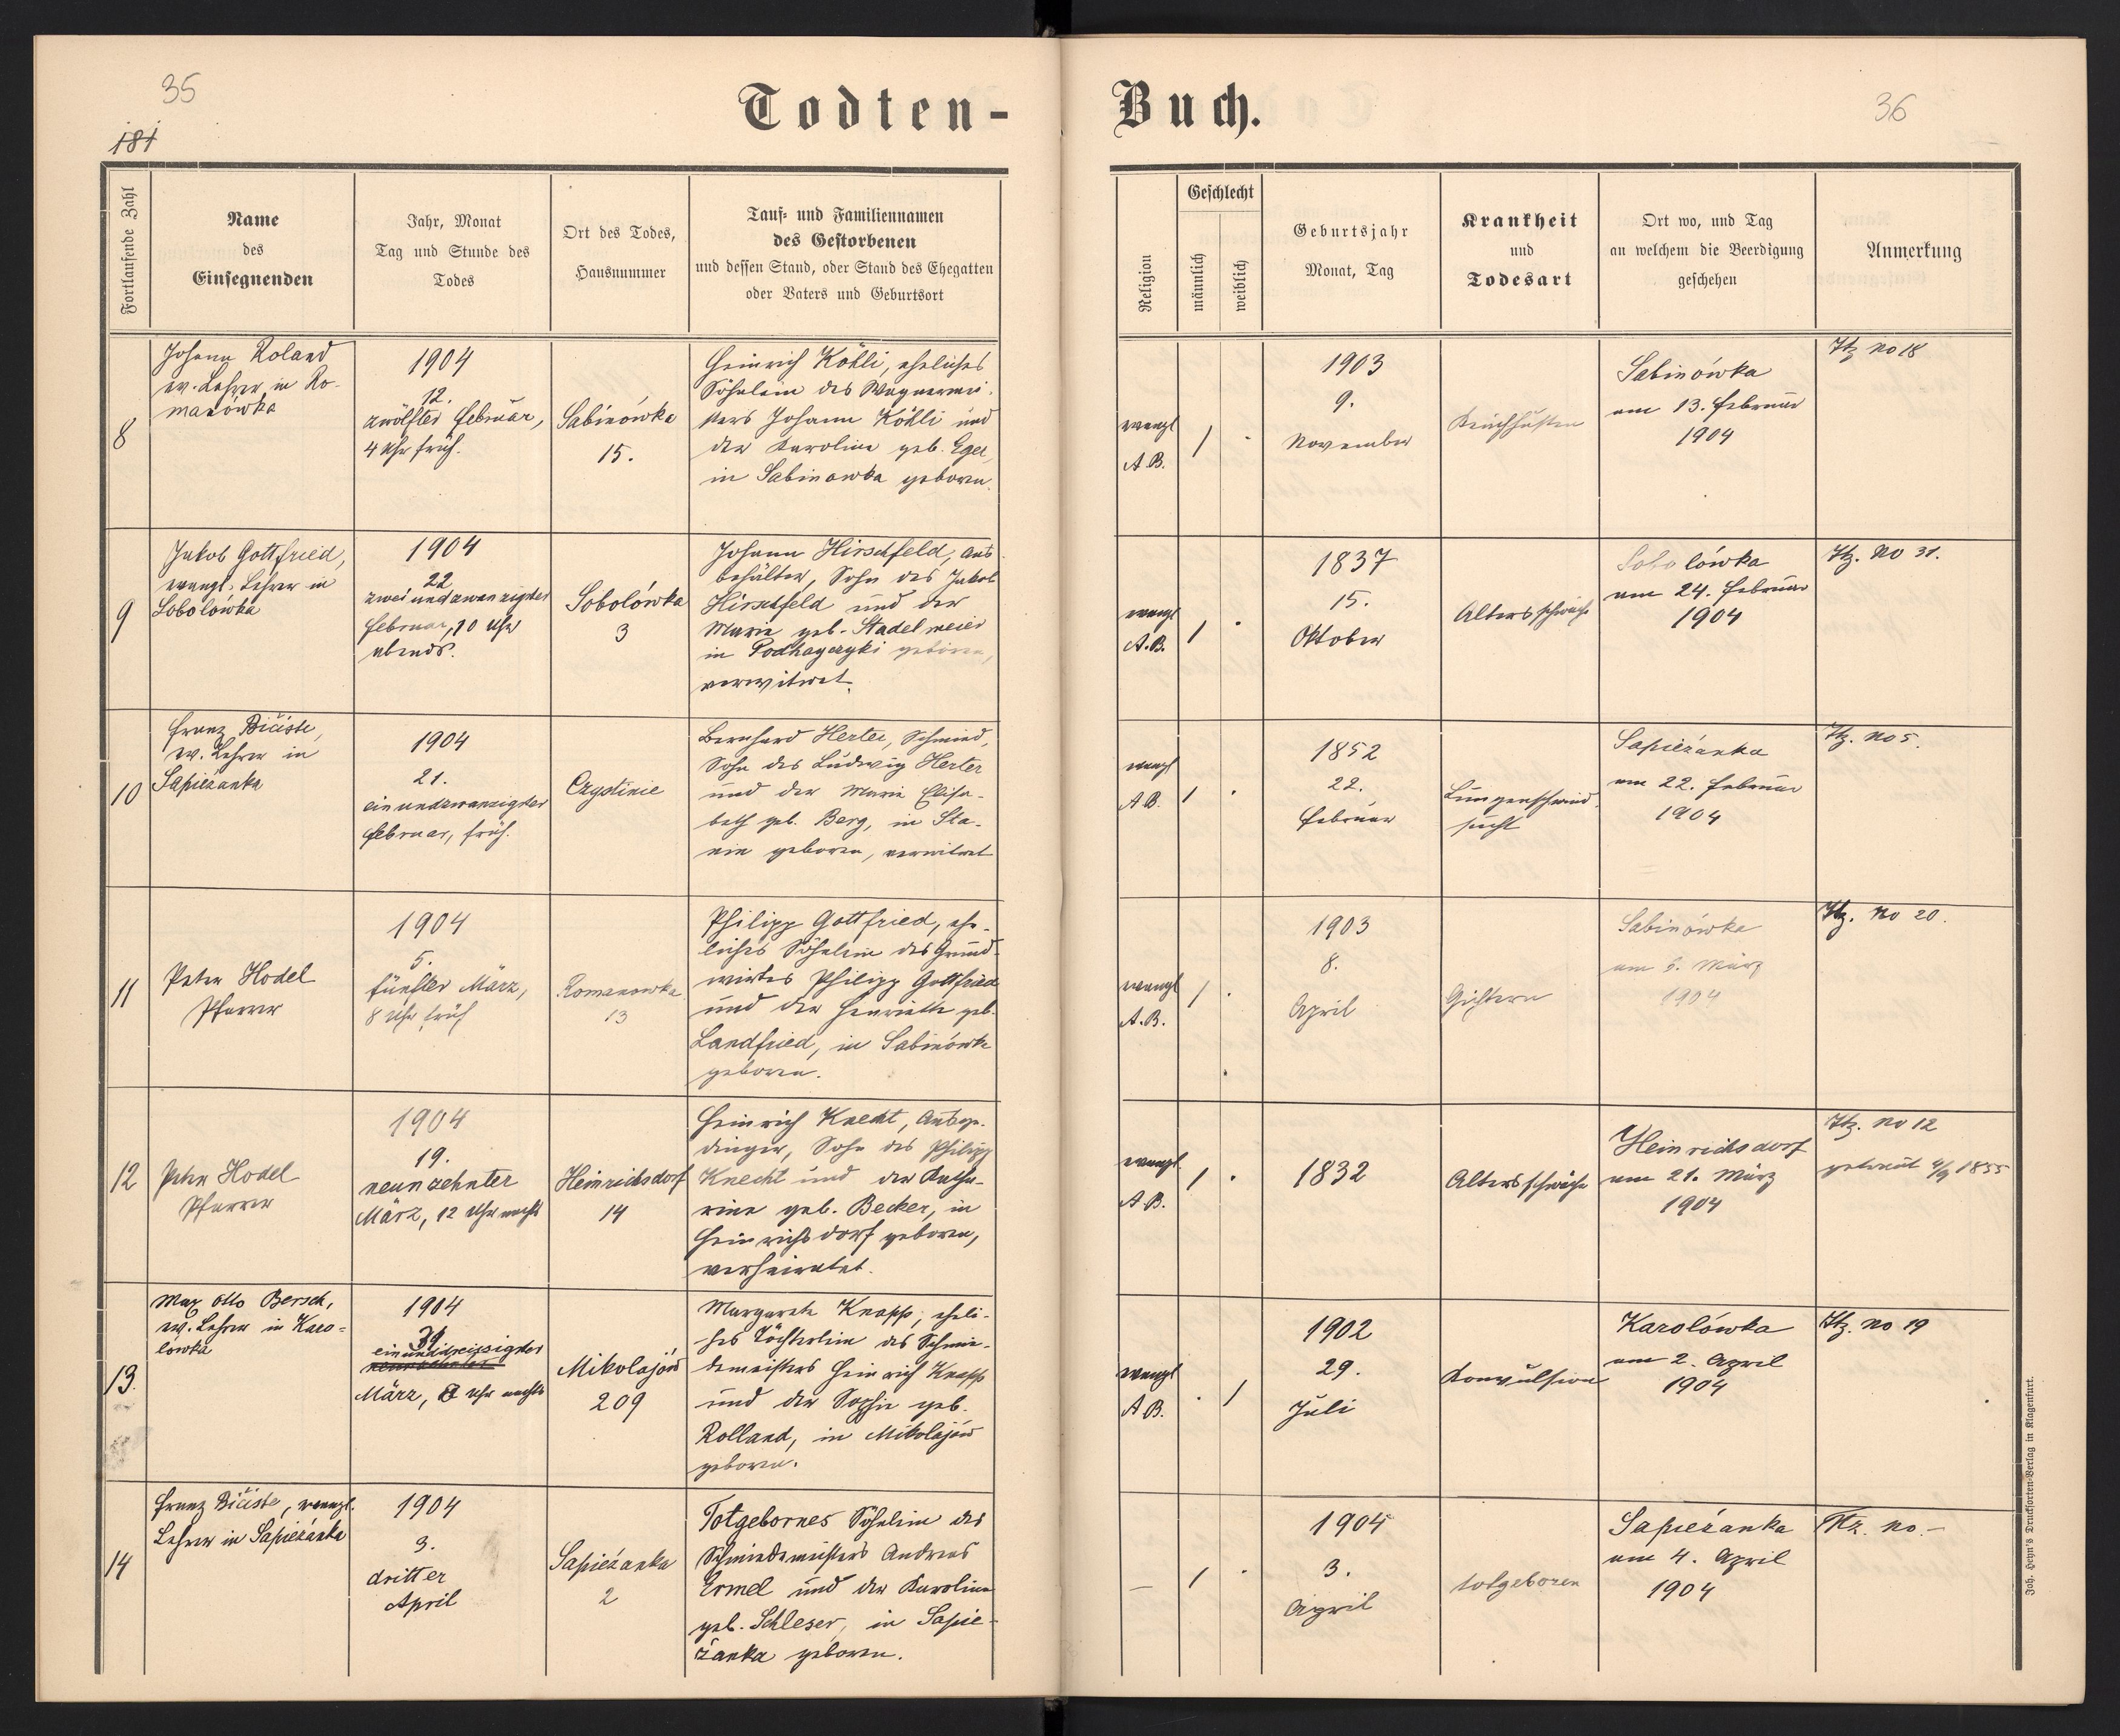 35
Todten-
Buch.
36
181
Fortlaufende Zahl
Name
des
Einsegnenden
Jahr, Monat
Tag und Stunde des
Todes
Ort des Todes,
Hausnummer
Tauf- und Familiennamen
des Gestorbenen
und dessen Stand, oder Stand des Ehegatten
oder Vaters und Geburtsort
Religion
Geschlecht
männlich
weiblich
Geburtsjahr
Monat, Tag
Krankheit
und
Todesart
Ort wo, und Tag
an welchem die Beerdigung
geschehen
Anmerkung
8
Johann Roland
ev. Lehrer in Ro-
manówka
1904
12.
zwölfter Februar,
4 Uhr früh.
Sabinówka
15.
Heinrich Köhli, eheliches
Söhnlein des Wagnermei-
sters Johann Köhli und
der Karoline geb. Egel,
in Sabinowka geboren.
evangl
A.B.
/ .
1903
9.
November
Keuchhusten
Sabinówka
am 13. Februar
1904
Itz no 18
9
Jakob Gottfried,
evangl. Lehrer in
Sobolówka
1904
22
zweiundzwanzigster
Februar, 10 Uhr
abends.
Sobolówka
3
Johann Hirschfeld, Aus
behälter, Sohn des Jakob
Hirschfeld und der
Marie geb. Stadelmeier
in Podhayczyki geboren,
verwitwet.
evangl
A.B.
/ .
1837
15.
Oktober
Altersschwäche
Sobolówka
am 24. Februar
1904
Itz. no 31.
10
Franz Bičiste,
ev. Lehrer in
Sapieżanka
1904
21.
einundzwanzigster
Februar, früh.
Czystinie
Bernhard Herter, Schmied,
Sohn des Ludwig Herter
und der Marie Elisa-
beth geb. Berg, in Sta-
nin geboren, verwitwet
evangl
A.B.
/ .
1852
22.
Februar
Lungenschwind-
sucht
Sapieżanka
am 22. Februar
1904
Itz. no 5.
11
Peter Hodel
Pfarrer
1904
5.
fünfter März,
8 Uhr früh
Romanowka
13
Philipp Gottfried, ehe-
liches Söhnlein des Grund-
wirtes Philipp Gottfried
und der Henriette geb.
Landfried, in Sabinówka
geboren.
evangl
A.B.
/ .
1903
8.
April
Gichtern
Sabinówka
am 6. März
1904
Itz. no 20.
12
Peter Hodel
Pfarrer
1904
19.
neunzehnter
März, 12 Uhr nachts
Heinrichsdorf
14
Heinrich Knecht, Ausge-
dinger, Sohn des Philipp
Knecht und der Katha-
rine geb. Becker, in
Heinrichsdorf geboren,
verheiratet.
evangl.
A.B.
/ .
1832
Altersschwäche
Heinrichsdorf
am 21. März
1904
Itz. no 12
getraut 4/9 1855
13.
Max Otto Bersch,
ev. Lehrer in Karo-
lówka
1904
31
einunddreissigster
neunzehnter
März, 8 Uhr nachts
Mikolajów
209
Margarete Knapp, eheli-
ches Töchterlein des Schmie-
demeisters Heinrich Knapp
und der Sophie geb.
Rolland, in Mikolajów
geboren.
evangl
A.B.
. /
1902
29.
Juli
Konvulsion
Karolówka
am 2. April
1904
Itz. no 19
14
Franz Bičiste, evangl.
Lehrer in Sapieżanka
1904
3.
dritter
April
Sapieżanka
2
Totgebornes Söhnlein des
Schmiedemeisters Andreas
Ermel und der Karoline
geb. Schleser, in Sapie-
żanka geboren.
—
/ .
1904
3.
April
totgeboren
Sapieżanka
am 4. April
1904
Itz. no. –
Joh. Heyn's Drucksorten-Verlag in Klagenfurt.